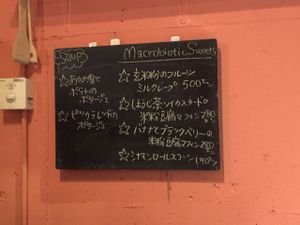 Soup
☆あやめ雪と
ポテトの
ポタージュ
☆ビーツとレッドの
ポタージュ
Macrobiotic Sweets
☆玄米粉のフルーツ
ミルクレープ 500
☆ほうじ茶ソイカスタードの
米粉豆腐マフィン 280
☆バナナとブラックベリーの
米粉豆腐マフィン 280
☆シナモンロールスコーン 190